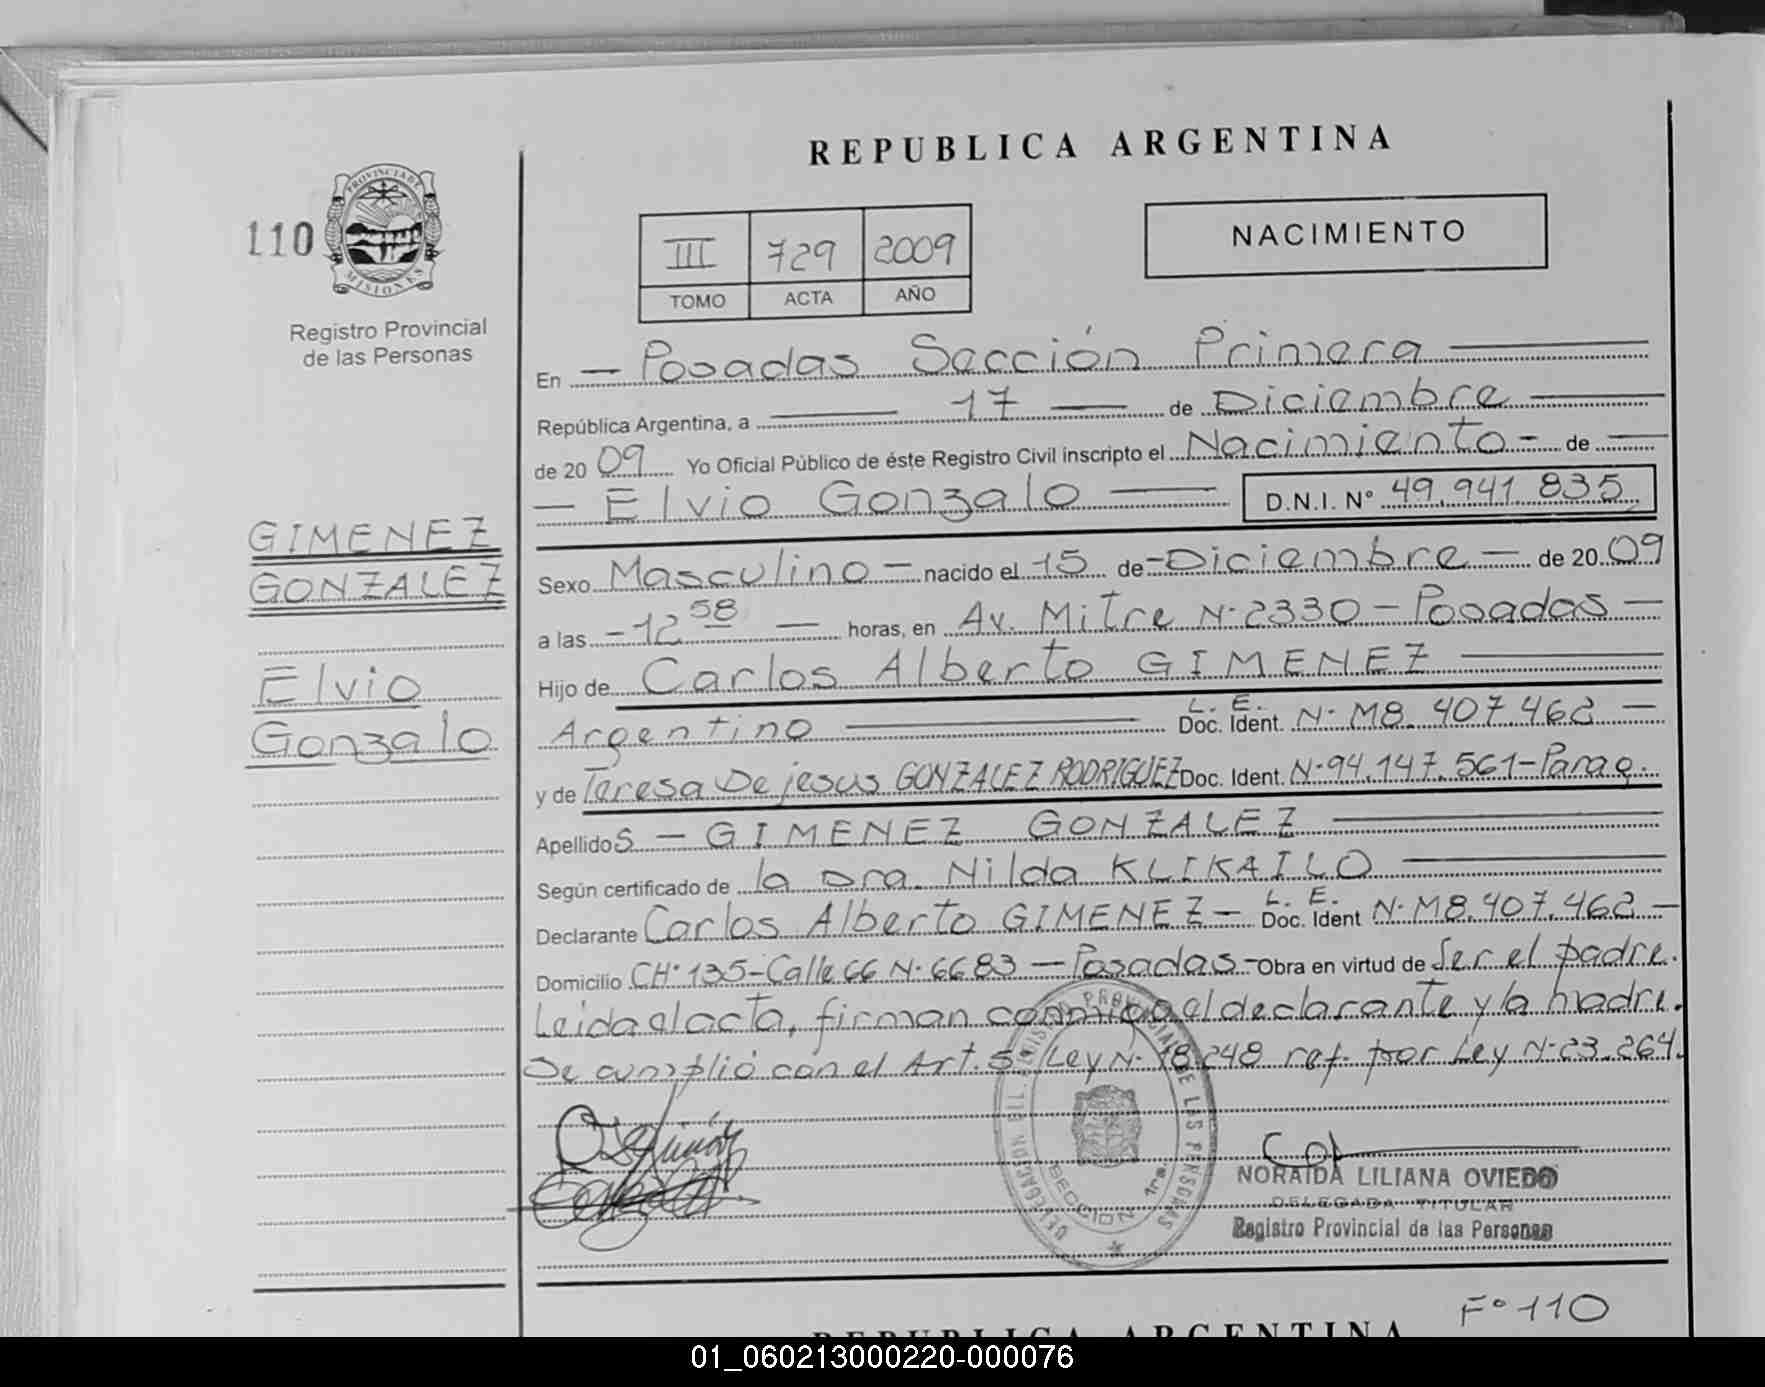 REPUBLICA ARGENTINA
110
PROVINCIA DE
MISIONES
Registro Provincial
de las Personas
III 729 2009
TOMO ACTA AÑO
NACIMIENTO
En — Posadas Sección Primera —
República Argentina, a — 17 — de Diciembre —
de 20 09 Yo Oficial Público de éste Registro Civil inscripto el Nacimiento - de —
— Elvio Gonzalo — D.N.I. N° 49.941.835
GIMENEZ
GONZALEZ
Elvio
Gonzalo
Sexo Masculino — nacido el 15 de - Diciembre — de 20 09
a las - 12 58 — horas, en Av. Mitre N° 2330 - Posadas —
Hijo de Carlos Alberto GIMENEZ —
Argentino — L. E. Doc. Ident. N° M8.407.462 —
y de Teresa De jesus GONZALEZ RODRIGUEZ Doc. Ident. N° 94.147.561 - Parag.
Apellidos — GIMENEZ GONZALEZ —
Según certificado de la Dra. Nilda KLIKAILO —
Declarante Carlos Alberto GIMENEZ — L. E. Doc. Ident N° M8.407.462 —
Domicilio CH° 135 - Calle 66 N° 6683 — Posadas - Obra en virtud de Ser el padre.
Leida el acta, firman conmigo el declarante y la madre.
Se cumplió con el Art. 5° Ley N° 18.248 ref. por Ley N° 23.264.
SECCION 1ra.
NORAIDA LILIANA OVIEDO
DELEGADA TITULAR
Registro Provincial de las Personas
F° 110
REPUBLICA ARGENTINA
01_060213000220-000076